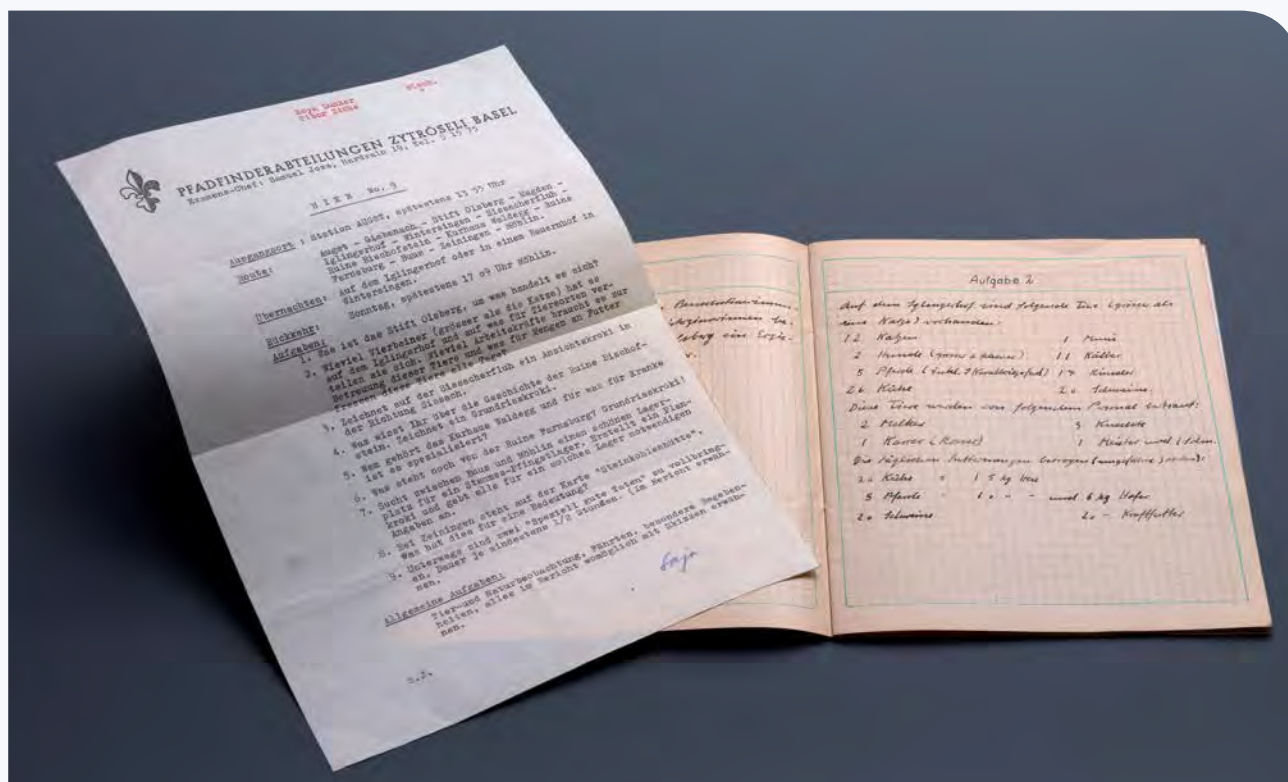 PFADFINDERABTEILUNGEN ZYTRÖSELI BASEL
Examens-Chef: Samuel Joss, Hardrain 19, Tel. 5 15 75
H I K E No. 9
Ausgangsort : Station AUGST, spätestens 13 55 Uhr
Route: Augst - Giebenach - Stift Olsberg - Magden -
Iglingerhof - Wintersingen - Sissacherfluh -
Ruine Bischofstein - Kurhaus Waldegg - Ruine
Farnsburg - Buus - Zeiningen - Möhlin.
Übernachten: Auf dem Iglingerhof oder in einem Bauernhof in
Wintersingen.
Rückkehr: Sonntag, spätestens 17 09 Uhr Möhlin.
Aufgaben:
1. Was ist das Stift Olsberg, um was handelt es sich?
2. Wieviel Vierbeiner (grösser als die Katze) hat es
auf dem Iglingerhof und auf was für Tiersorten ver-
teilen sie sich. Wieviel Arbeitskräfte braucht es zur
Betreuung dieser Tiere und was für Mengen an Futter
fressen diese Tiere alle Tage?
3. Zeichnet auf der Sissacherfluh ein Ansichtskroki in
der Richtung Sissach.
4. Was wisst Ihr über die Geschichte der Ruine Bischof-
stein. Zeichnet ein Grundrisskroki.
5. Wem gehört das Kurhaus Waldegg und für was für Kranke
ist es spezialisiert?
6. Was steht noch von der Ruine Farnsburg? Grundrisskroki!
7. Sucht zwischen Buus und Möhlin einen schönen Lager-
platz für ein Stammes-Pfingstlager. Erstellt ein Plan-
kroki und gebt alle für ein solches Lager notwendigen
Angaben an.
8. Bei Zeiningen steht auf der Karte "Steinkohlenhütte".
Was hat dies für eine Bedeutung?
9. Unterwegs sind zwei "Speziell gute Taten" zu vollbring-
en. Dauer je mindestens 1/2 Stunden. (Im Bericht erwäh-
nen.
Allgemeine Aufgaben:
Tier-und Naturbeobachtung, Fährten, besondere Begeben-
heiten, alles im Bericht womöglich mit Skizzen erwäh-
nen.
Saju
Aufgabe 2
Auf dem Iglingerhof sind folgende Tiere (grösser als
eine Katze) vorhanden:
12 Katzen 1 Muni
2 Hunde 11 Kälber
5 Pferde 17 Rinder
26 Kühe 20 Schweine.
Diese Tiere werden von folgendem Personal betreut:
2 Melker 3 Knechte
1 Karrer 1 Meister und 1 Sohn.
Kühe 15 kg Heu
5 Pferde 10 - - und 6 kg Hafer
20 Schweine 20 - Kraftfutter